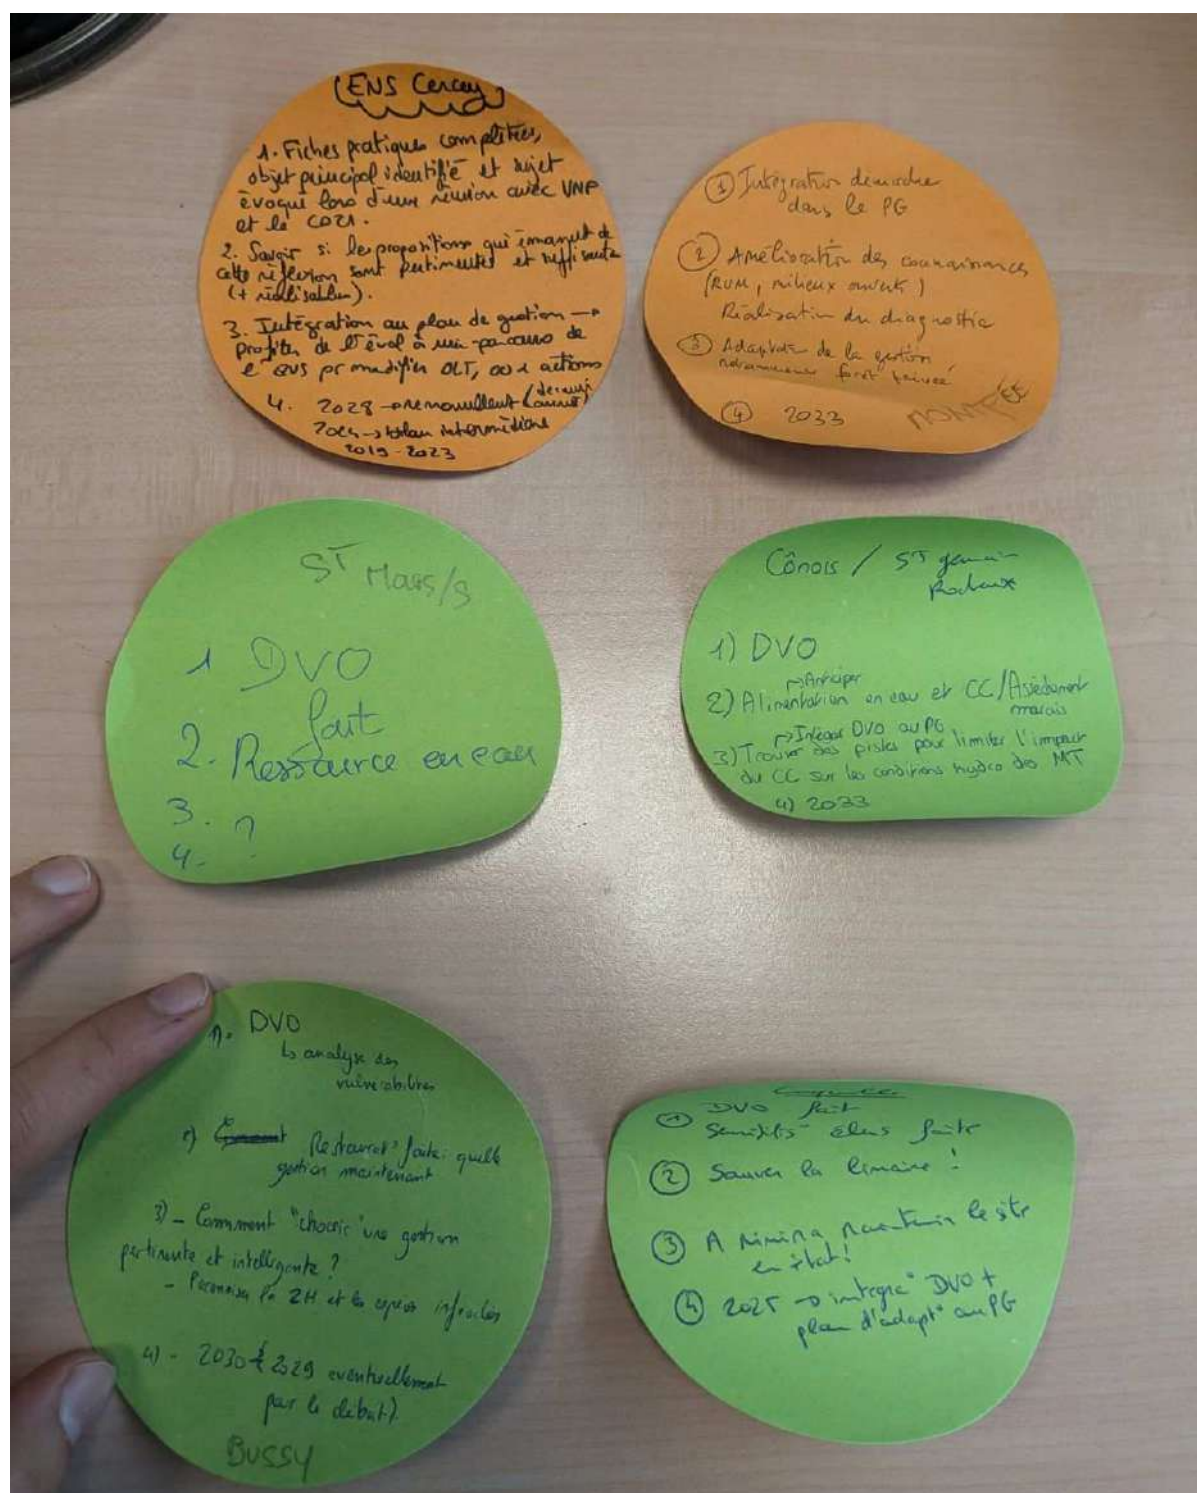 ENS Cercey
1. Fiches pratiques complétées,
objet principal identifié et sujet
évoqué lors d'une réunion avec VNF
et le CD21.
2. Savoir si les propositions qui émanent de
cette réflexion sont pertinentes et suffisantes
(+ réalisables).
3. Intégration au plan de gestion →
profiter de l'éval à mi-parcours de
l'ENS pr modifier OLT, OO et actions
4. 2028 → renouvellent (dernière
année)
2024 → bilan intermédiaire
2019-2023
① Intégration démarche
dans le PG
② Amélioration des connaissances
(RUM, milieux ouverts)
Réalisation du diagnostic
③ Adaptation de la gestion
notamment forêt privée
④ 2033
ST Mars/S
1 DVO
fait
2. Ressource en eau
3.
4. ?
Cônois / ST germain
Rocheux
1) DVO
→ Anticiper
2) Alimentation en eau et CC/Assèchement
marais
→ Intégrer DVO au PG
3) Trouver des pistes pour limiter l'impact
du CC sur les conditions hydro des MT
4) 2033
1). DVO
↳ analyse des
vulnérabilités
2) Restaurat° faite: quelle
gestion maintenant
3) - Comment "choisir" une gestion
pertinente et intelligente ?
- la ZH et les espèces inféodées
4) - 2030 2029 eventuellement
par le début).
BUSSY
① DVO fait
Sensibilis° élus faite
② Sauver la limaire !
③ A minima maintenir le site
en état!
④ 2025 → integra° DVO +
plan d'adapt° au PG